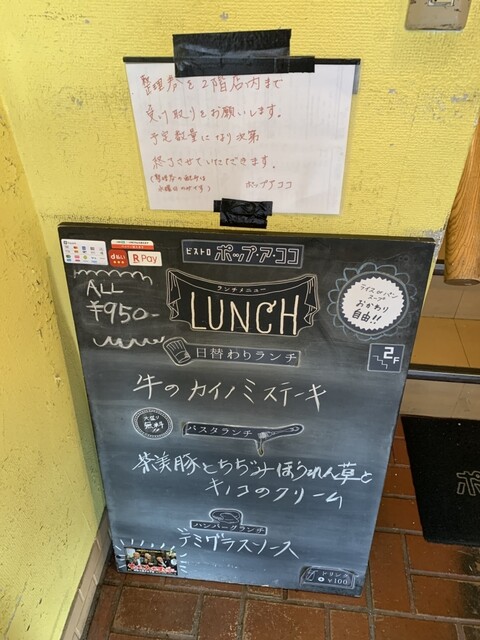 整理券を2階店内まで
受け取りをお願いします。
予定数量になり次第
終了させていただきます。
(整理券の配布は
水曜日のみです)
ポップアココ
ビストロ ポップ・ア・ココ
d払い
R Pay
ALL
¥950-
ランチメニュー
LUNCH
ライス or パン
スープ
おかわり
自由!!
2F
日替わりランチ
牛のカイノミステーキ
大盛り
無料!!
パスタランチ
茶美豚とちぢみほうれん草と
キノコのクリーム
ハンバーグランチ
デミグラスソース
ドリンク
¥100